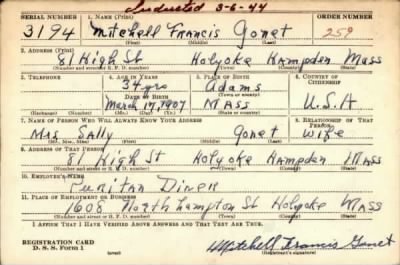 Inducted 3-6-44
SERIAL NUMBER 1. NAME (Print) ORDER NUMBER
3194 Mitchell Francis Gonet 259
(First) (Middle) (Last)
2. ADDRESS (Print)
81 High St Holyoke Hampden Mass
(Number and street or R. F. D. number) (Town) (County) (State)
3. TELEPHONE 4. AGE IN YEARS 5. PLACE OF BIRTH 6. COUNTRY OF CITIZENSHIP
34 yrs Adams
DATE OF BIRTH (Town or county)
March 17, 1907 Mass U.S.A
(Exchange) (Number) (Mo.) (Day) (Yr.) (State or country)
7. NAME OF PERSON WHO WILL ALWAYS KNOW YOUR ADDRESS 8. RELATIONSHIP OF THAT PERSON
Mrs Sally Gonet Wife
(Mr., Mrs., Miss) (First) (Middle) (Last)
9. ADDRESS OF THAT PERSON
81 High St Holyoke Hampden Mass
(Number and street or R. F. D. number) (Town) (County) (State)
10. EMPLOYER'S NAME
Puritan Diner
11. PLACE OF EMPLOYMENT OR BUSINESS
1608 Northhampton St Holyoke Mass
(Number and street or R. F. D. number) (Town) (County) (State)
I AFFIRM THAT I HAVE VERIFIED ABOVE ANSWERS AND THAT THEY ARE TRUE.
REGISTRATION CARD
D. S. S. Form 1 (over) Mitchell Francis Gonet
(Registrant's signature)